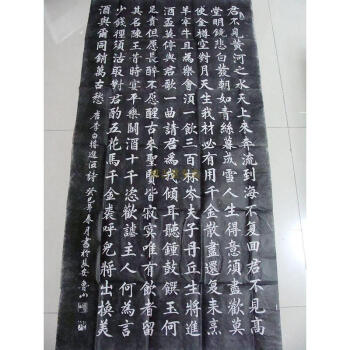 君不見黃河之水天上來奔流到海不復回君不見高
堂明鏡悲白髮朝如青絲暮成雪人生得意須盡歡莫
使金樽空對月天生我材必有用千金散盡還復來烹
羊宰牛且為樂會須一飲三百杯岑夫子丹丘生將進
酒盃莫停與君歌一曲請君為我傾耳聽鐘鼓饌玉何
足貴但愿長醉不愿醒古來聖賢皆寂寞唯有飲者留
其名陳王昔時宴平樂鬭酒十千恣歡謔主人何為言
少錢徑須沽取對君酌五花馬千金裘呼兒將出換美
酒與爾同銷萬古愁 唐李白將進酒詩 癸巳年春月書於長安魯山